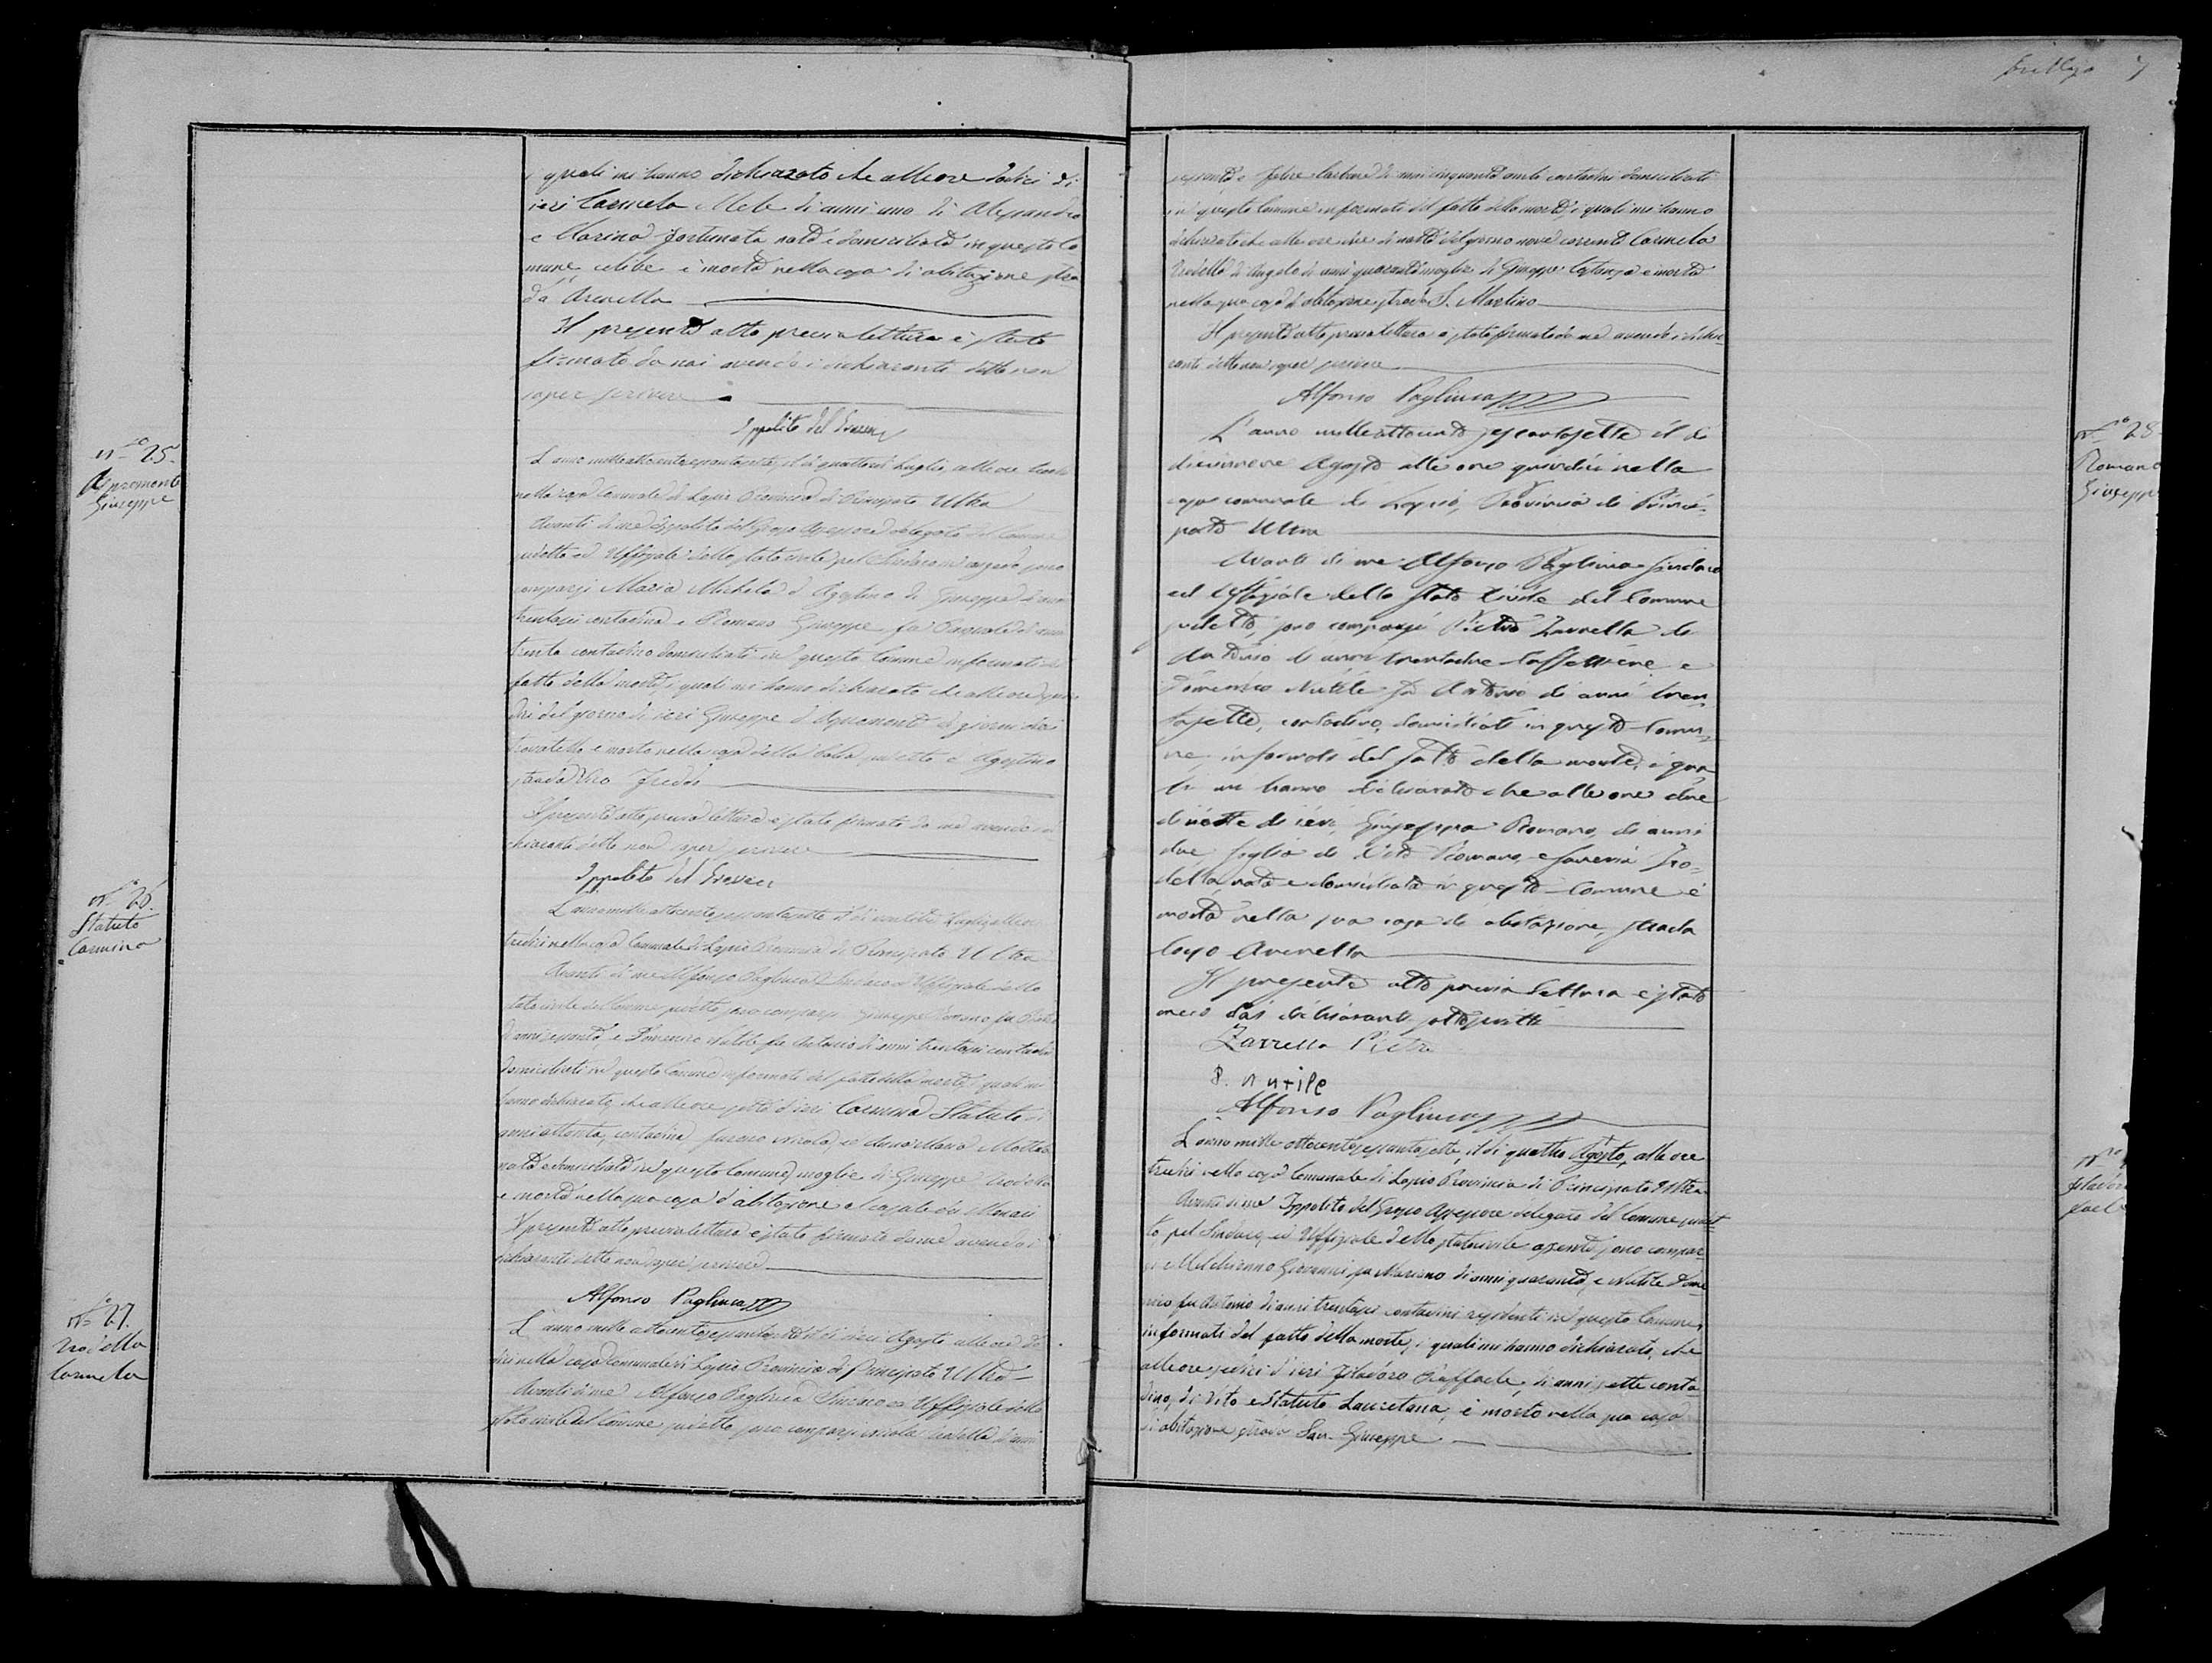 i quali mi hanno dichiarato che alle ore dodici di
ieri Carmela Mele di anni uno di Alessandro
e Marino Fortunata nata e domiciliata in questo Co
mune, celibe è morta nella casa di abitazione stra
da Arenella
Il presente atto previa lettura è stato
firmato da noi avendo i dichiaranti detto non
saper scrivere
Ippolito del Grosso
nº 25.
Aspromonte
Giuseppe
L'anno mille ottocento sessantasette, il dì quattordi Luglio, alle ore
nella casa Comunale di Lapio Provincia di Principato Ultra
Avanti di me Ippolito del Grosso Assessore delegato del Comune
sudetto ed Uffiziale dello stato civile pel Sindaco sono
comparsi Maria Michela d'Agostino di Giuseppe di anni
trentasei contadina e Romano Giuseppe fu Pasquale di anni
trenta contadino domiciliati in questo Comune informati del
fatto della morte, i quali mi hanno dichiarato che alle ore
del giorno di ieri Giuseppe d'Aspromonte di giorni
trovatello è morto nella casa della balia sudetta d'Agostino
strada Vico Freddo
Il presente atto previa lettura è stato firmato da me avendo i di
chiaranti detto non saper scrivere
Ippolito del Grosso
nº 26.
Statuto
Carmina
L'anno mille ottocento sessantasette il dì ventidue Luglio alle ore
tredici nella casa Comunale di Lapio Provincia di Principato Ultra
Avanti di me Alfonso Pagliuca Sindaco ed Uffiziale dello
stato civile del Comune sudetto sono comparsi Giuseppe Romano fu
di anni sessanta e Domenico Nutile fu Antonio di anni trentasei contadini
domiciliati in questo Comune informati del fatto della morte i quali mi
hanno dichiarato, che alle ore sette d'ieri Carmina Statuto di
anni ottanta, contadina furono Nicola, e Mottola
nata e domiciliata in questo Comune, moglie di Giuseppe Trodella
è morta nella sua casa d'abitazione al casale dei Monaci
Il presente atto previa lettura è stato firmato da me avendo i
dichiaranti detto non saper scrivere
Alfonso Pagliuca
nº 27.
Trodella
Carmela
L'anno mille ottocento sessantasette il dì dieci Agosto alle ore do
dici nella casa Comunale di Lapio Provincia di Principato Ultra
Avanti di me Alfonso Pagliuca Sindaco ed Uffiziale dello
stato civile del Comune sudetto sono comparsi Nicola Trodella di anni
7
sessanta e Felice Carbone di anni cinquanta ambi contadini domiciliati
in questo Comune informati del fatto della morte, i quali mi hanno
dichiarato che alle ore due di notte del giorno nove corrente Carmela
Trodella di Angelo di anni quaranta moglie di Giuseppe Costanza è morta
nella sua casa d'abitazione, strada S. Martino
Il presente atto previa lettura è stato firmato da me avendo i dichia-
ranti detto non saper scrivere
Alfonso Pagliuca
nº 28
Romano
Giusepp
L'anno mille ottocento sessantasette il dì
diecinove Agosto alle ore quindici nella
casa comunale di Lapio, Provincia di Princi-
pato Ultra
Avanti di me Alfonso Pagliuca Sindaco
ed Uffiziale dello Stato Civile del Comune
sudetto, sono comparsi Pietro Zarrella di
Antonio di anni trentadue e
Domenico Nutile fu Antonio di anni tren-
tasette, contadino, domiciliati in questo Comu-
ne informati del fatto della morte, i qua
li mi hanno dichiarato che alle ore due
di notte di ieri, Giuseppa Romano, di anni
due figlia di Vito Romano, e Saveria Tro-
della, nata e domiciliata in questo Comune è
morta nella sua casa di abitazione, strada
Largo Arenella
Il presente atto previa lettura è stato
meco dai dichiaranti sottoscritto
Zarrella Pietro
D. nutile
Alfonso Pagliuca
nº
filadoro
L'anno mille ottocento sessantasette, il dì quattro Agosto, alle ore
tredici nella casa Comunale di Lapio Provincia di Principato Ultra
Avanti di me Ippolito del Grosso Assessore delegato del Comune sudet
to, pel Sindaco, ed Uffiziale dello stato civile assente, sono compar-
si Melchionno Giovanni fu Mariano di anni quaranta, e Nutile Dome
nico fu Antonio di anni trentasei contadini residenti in questo Comune,
informati del fatto della morte, i quali mi hanno dichiarato, che
alle ore sedici d'ieri Filadoro Raffaele, di anni sette conta-
dino, di Vito e Statuto Lauretana, è morto nella sua casa
di abitazione strada San Giuseppe